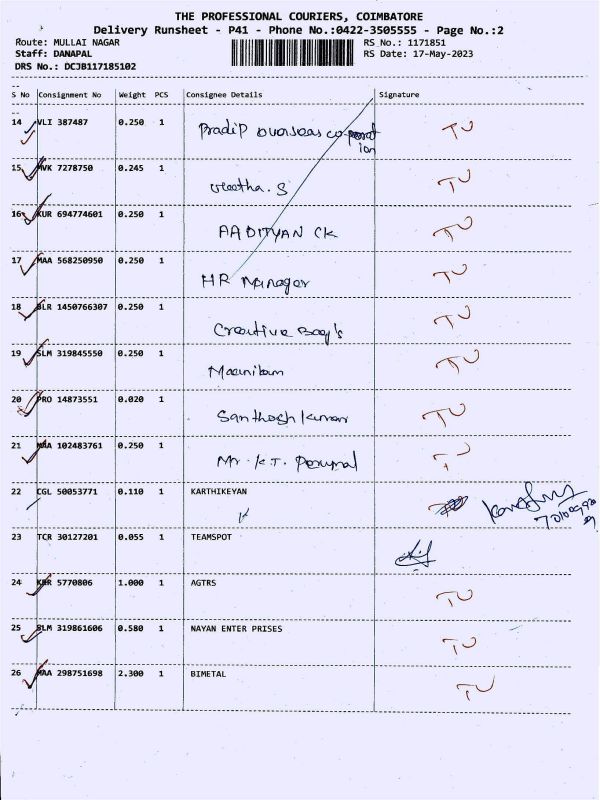 THE PROFESSIONAL COURIERS, COIMBATORE
Delivery Runsheet - P41 - Phone No.:0422-3505555 - Page No.:2
Route: MULLAI NAGAR RS No.: 1171851
Staff: DANAPAL RS Date: 17-May-2023
DRS No.: DCJB117185102
S No Consignment No Weight PCS Consignee Details Signature
14 VLI 387487 0.250 1 Pradip overseas corporation TU
15 NVK 7278750 0.245 1 S TU
16 KUR 694774601 0.250 1 AADITYAN CK TU
17 MAA 568250950 0.250 1 HR Manager TU
18 BLR 1450766307 0.250 1 Creative Bag's TU
19 SLM 319845550 0.250 1 TU
20 PRO 14873551 0.020 1 Santhosh kumar TU
21 MAA 102483761 0.250 1 Mr. K.T. Perumal T
22 CGL 50053771 0.110 1 KARTHIKEYAN
23 TCR 30127201 0.055 1 TEAMSPOT
24 KER 5770806 1.000 1 AGTRS TU
25 SLM 319861606 0.580 1 NAYAN ENTER PRISES TU
26 MAA 298751698 2.300 1 BIMETAL TU